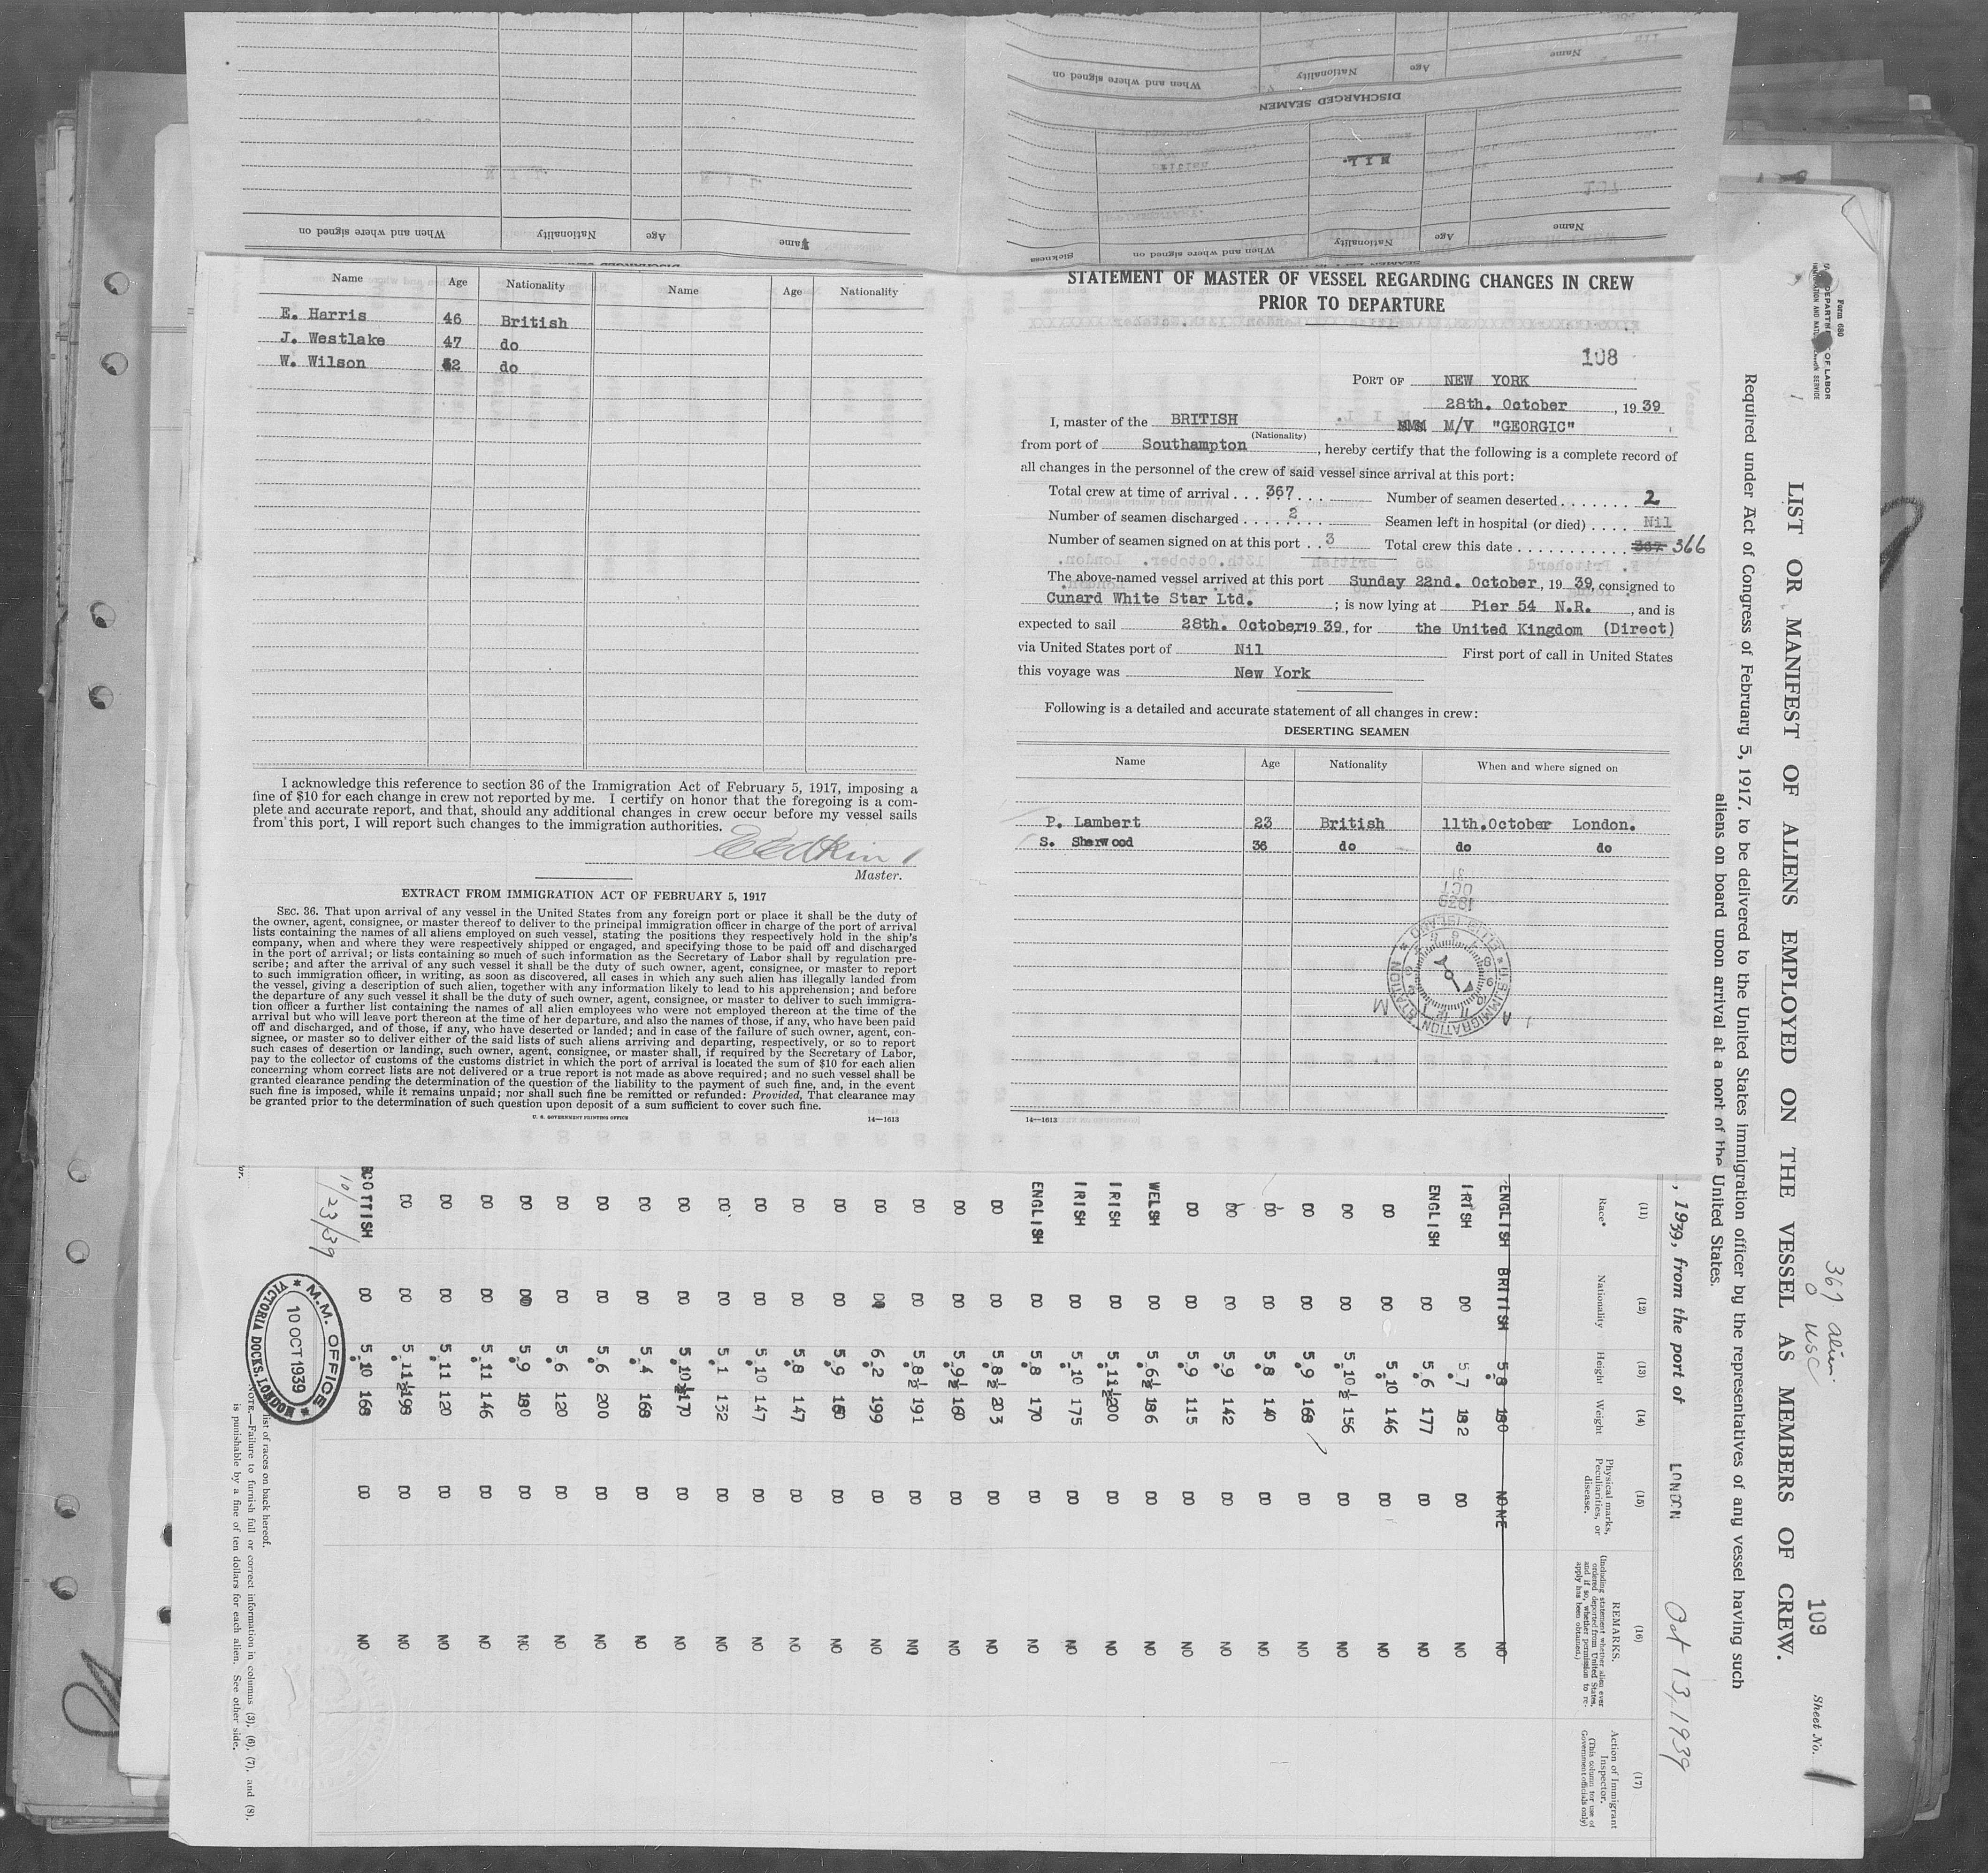 When and where signed on Nationality Age Name
DISCHARGED SEAMEN
When and where signed on Nationality Age Name
NIL.
Sickness When and where signed on Nationality Age Name
Name Age Nationality Name Age Nationality
E. Harris 46 British
J. Westlake 47 do
W. Wilson 52 do
I acknowledge this reference to section 36 of the Immigration Act of February 5, 1917, imposing a
fine of $10 for each change in crew not reported by me. I certify on honor that the foregoing is a com-
plete and accurate report, and that, should any additional changes in crew occur before my vessel sails
from this port, I will report such changes to the immigration authorities.
Master.
EXTRACT FROM IMMIGRATION ACT OF FEBRUARY 5, 1917
SEC. 36. That upon arrival of any vessel in the United States from any foreign port or place it shall be the duty of
the owner, agent, consignee, or master thereof to deliver to the principal immigration officer in charge of the port of arrival
lists containing the names of all aliens employed on such vessel, stating the positions they respectively hold in the ship's
company, when and where they were respectively shipped or engaged, and specifying those to be paid off and discharged
in the port of arrival; or lists containing so much of such information as the Secretary of Labor shall by regulation pre-
scribe; and after the arrival of any such vessel it shall be the duty of such owner, agent, consignee, or master to report
to such immigration officer, in writing, as soon as discovered, all cases in which any such alien has illegally landed from
the vessel, giving a description of such alien, together with any information likely to lead to his apprehension; and before
the departure of any such vessel it shall be the duty of such owner, agent, consignee, or master to deliver to such immigra-
tion officer a further list containing the names of all alien employees who were not employed thereon at the time of the
arrival but who will leave port thereon at the time of her departure, and also the names of those, if any, who have been paid
off and discharged, and of those, if any, who have deserted or landed; and in case of the failure of such owner, agent, con-
signee, or master so to deliver either of the said lists of such aliens arriving and departing, respectively, or so to report
such cases of desertion or landing, such owner, agent, consignee, or master shall, if required by the Secretary of Labor,
pay to the collector of customs of the customs district in which the port of arrival is located the sum of $10 for each alien
concerning whom correct lists are not delivered or a true report is not made as above required; and no such vessel shall be
granted clearance pending the determination of the question of the liability to the payment of such fine, and, in the event
such fine is imposed, while it remains unpaid; nor shall such fine be remitted or refunded: Provided, That clearance may
be granted prior to the determination of such question upon deposit of a sum sufficient to cover such fine.
U. S. GOVERNMENT PRINTING OFFICE 14—1613
STATEMENT OF MASTER OF VESSEL REGARDING CHANGES IN CREW
PRIOR TO DEPARTURE
108
PORT OF NEW YORK
28th. October, 1939
I, master of the BRITISH M/V "GEORGIC"
(Nationality)
from port of Southampton, hereby certify that the following is a complete record of
all changes in the personnel of the crew of said vessel since arrival at this port:
Total crew at time of arrival . . . 367 . . . Number of seamen deserted . . . . . . . 2
Number of seamen discharged . . . . 2 . . . . Seamen left in hospital (or died) . . . . Nil
Number of seamen signed on at this port . . 3 Total crew this date . . . . . . . . . . . 367 366
The above-named vessel arrived at this port Sunday 22nd. October, 1939, consigned to
Cunard White Star Ltd. ; is now lying at Pier 54 N.R., and is
expected to sail 28th. October, 1939, for the United Kingdom (Direct)
via United States port of Nil First port of call in United States
this voyage was New York
Following is a detailed and accurate statement of all changes in crew:
DESERTING SEAMEN
Name Age Nationality When and where signed on
P. Lambert 23 British 11th.October London.
S. Sherwood 36 do do do
1939
OCT
31
U.S. IMMIGRATION STATION ELLIS ISLAND
14—1613
Form 680
U. S. DEPARTMENT OF LABOR
IMMIGRATION AND NATURALIZATION SERVICE
109
Sheet No.
367 aliens
0 USC
LIST OR MANIFEST OF ALIENS EMPLOYED ON THE VESSEL AS MEMBERS OF CREW.
Required under Act of Congress of February 5, 1917, to be delivered to the United States immigration officer by the representatives of any vessel having such
aliens on board upon arrival at a port of the United States.
, 1939, from the port of LONDON Oct 13, 1939
(11) (12) (13) (14) (15) (16) (17)
Race* Nationality Height Weight Physical marks, Peculiarities, or disease. REMARKS. (Including statement whether alien ever ordered deported from United States, and if so, whether permission to re-apply has been obtained.) Action of Immigrant Inspector. (This column for use of Government officials only)
ENGLISH BRITISH 5.8 180 NONE NO
IRISH DO 5.7 182 DO NO
ENGLISH DO 5.6 177 DO NO
DO DO 5.10 146 DO NO
DO DO 5.10½ 156 DO NO
DO DO 5.9 168 DO NO
DO DO 5.8 140 DO NO
DO DO 5.9 142 DO NO
DO DO 5.9 115 DO NO
WELSH DO 5.6½ 186 DO NO
IRISH DO 5.11½ 200 DO NO
IRISH DO 5.10 175 DO NO
ENGLISH DO 5.8 170 DO NO
DO DO 5.8½ 203 DO NO
DO DO 5.9½ 160 DO NO
DO DO 5.8½ 191 DO NO
DO DO 6.2 199 DO NO
DO DO 5.9 160 DO NO
DO DO 5.8 147 DO NO
DO DO 5.10 147 DO NO
DO DO 5.1 132 DO NO
DO DO 5.10½ 170 DO NO
DO DO 5.4 168 DO NO
DO DO 5.6 200 DO NO
DO DO 5.6 120 DO NO
DO DO 5.9 180 DO NO
DO DO 5.11 146 DO NO
DO DO 5.11 120 DO NO
DO DO 5.11½ 198 DO NO
SCOTTISH DO 5.10 168 DO NO
10/23/39
M.M. OFFICE
10 OCT 1939
VICTORIA DOCKS, LONDON
list of races on back hereof.
NOTE.—Failure to furnish full or correct information in columns (3), (6), (7), and (8),
is punishable by a fine of ten dollars for each alien. See other side.